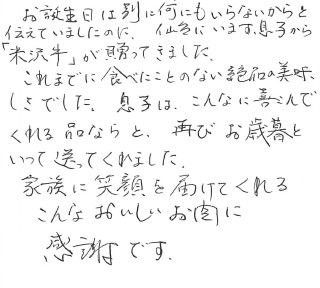 お誕生日は別に何にもいらないからと
伝えていましたのに、仙台にいます息子から
「米沢牛」が贈ってきました。
これまでに食べたことのない絶品の美味
しさでした。息子は、こんなに喜こんで
くれる品ならと、再びお歳暮と
いって送ってくれました。
家族に笑顔を届けてくれる
こんなおいしいお肉に
感謝です。